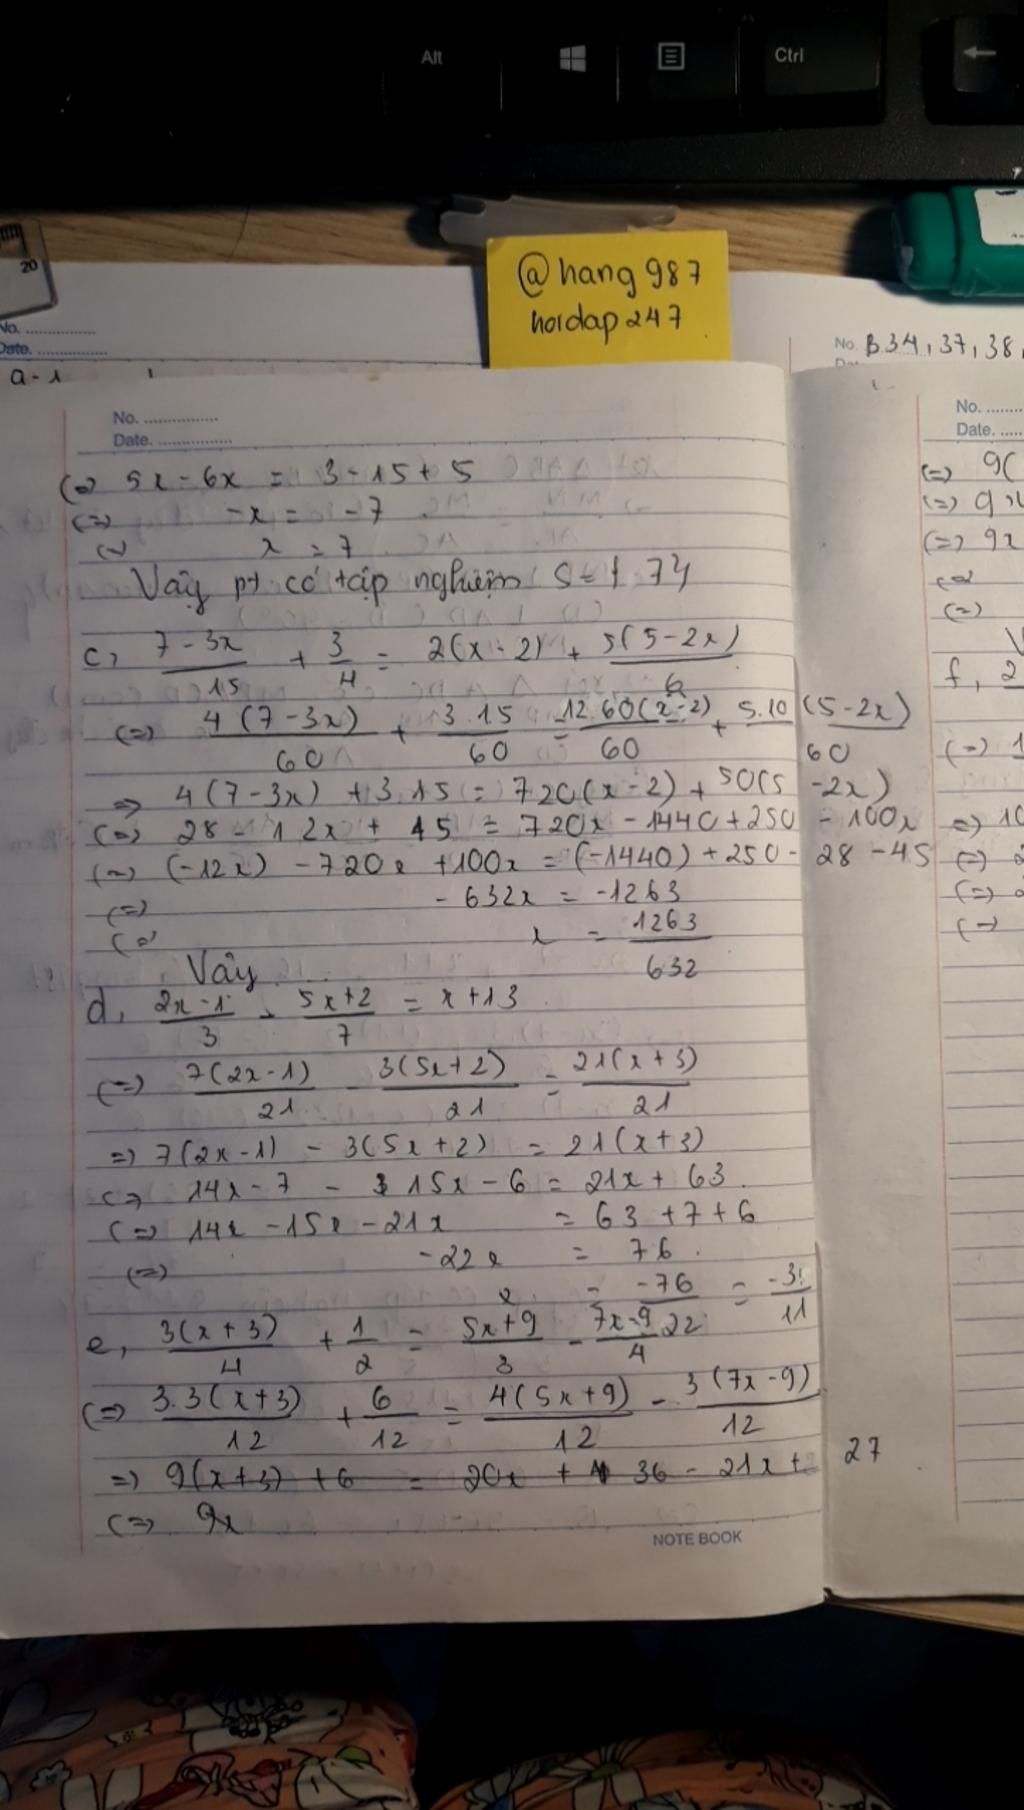 Alt
Ctrl
20
@hang987
hoidap247
No.
Date.
a-1
No. B34, 37, 38,
No.
Date.
(=) 5x - 6x = 3 - 15 + 5
(=) -x = -7
(=) x = 7
Vây pt có tập nghiệm S = { 7 }
c, 7-3x/15 + 3/4 = 2(x-2) + 5(5-2x)/6
(=) 4(7-3x)/60 + 3.15/60 = 12.60(x-2)/60 + 5.10(5-2x)/60
=) 4(7-3x) + 3.15 = 720(x-2) + 50(5-2x)
(=) 28 - 12x + 45 = 720x - 1440 + 250 - 100x
(=) (-12x) - 720x + 100x = (-1440) + 250 - 28 - 45
(=) -632x = -1263
(=) x = 1263/632
Vây
d, 2x-1/3 - 5x+2/7 = x+13
(=) 7(2x-1)/21 - 3(5x+2)/21 = 21(x+3)/21
=) 7(2x-1) - 3(5x+2) = 21(x+3)
(=) 14x-7 - 15x-6 = 21x + 63
(=) 14x - 15x - 21x = 63 + 7 + 6
(=) -22x = 76
x = -76/22 = -3/11
e, 3(x+3)/4 + 1/2 = 5x+9/3 - 7x-9/4
(=) 3.3(x+3)/12 + 6/12 = 4(5x+9)/12 - 3(7x-9)/12
=) 9(x+3) + 6 = 20x + 36 - 21x + 27
(=) 9x
NOTE BOOK
No.
Date.
(=) 9(
(=) 9x
(=) 9x
(=)
(=)
V
f, 2
(=) 1
=) 10
(=) 2
(=)
(=)